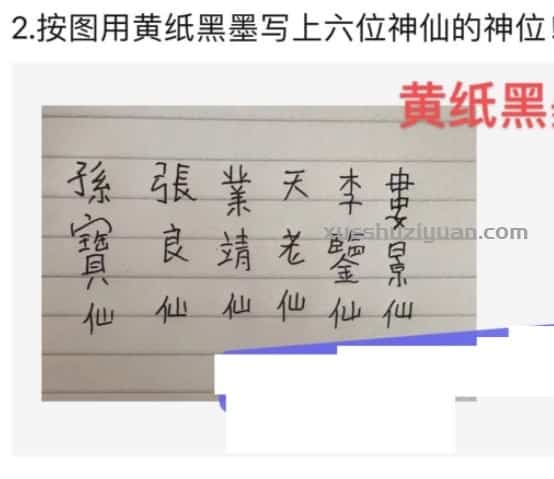 2.按图用黄纸黑墨写上六位神仙的神位!
黄纸黑
孫寶仙
張良仙
業靖仙
天老仙
李鑒仙
景仙
xueshuziyuan.com